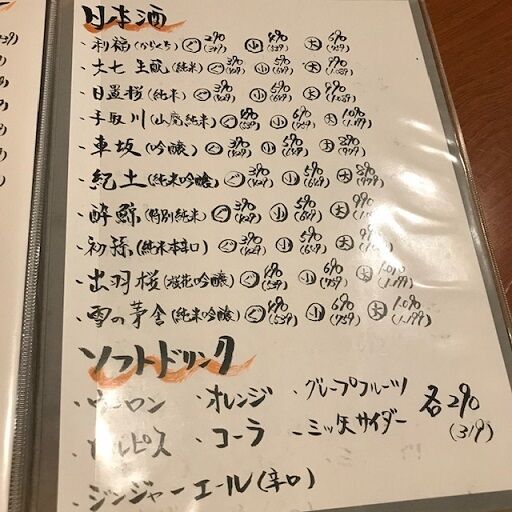 日本酒
・利福(からくち) ㋗290(319) ㊥490(539) 大690(759)
・大七 生酛(純米) ㋗390(429) 小590(649) 大990(1089)
・日置桜(純米) ㋗390(429) 小590(649) 大990(1089)
・手取川(山廃純米) ㋗490(539) 小690(759) 大1090(1199)
・車坂(吟醸) ㋗390(429) 小590(649) 大890(979)
・紀土(純米吟醸) ㋗390(429) 小590(649) 大890(979)
・酔鯨(特別純米) ㋗390(429) 小590(649) 大990
・初孫(純米本辛口) ㋗390(429) 小590(649) 大990
・出羽桜(桜花吟醸) ㋗490(539) 小690(759) 大1090(1199)
・雪の茅舎(純米吟醸) ㋗490(539) 小690(759) 大1090(1199)
ソフトドリンク
・ウーロン ・オレンジ ・グレープフルーツ 各290(319)
・カルピス ・コーラ ・三ッ矢サイダー
・ジンジャーエール(辛口)